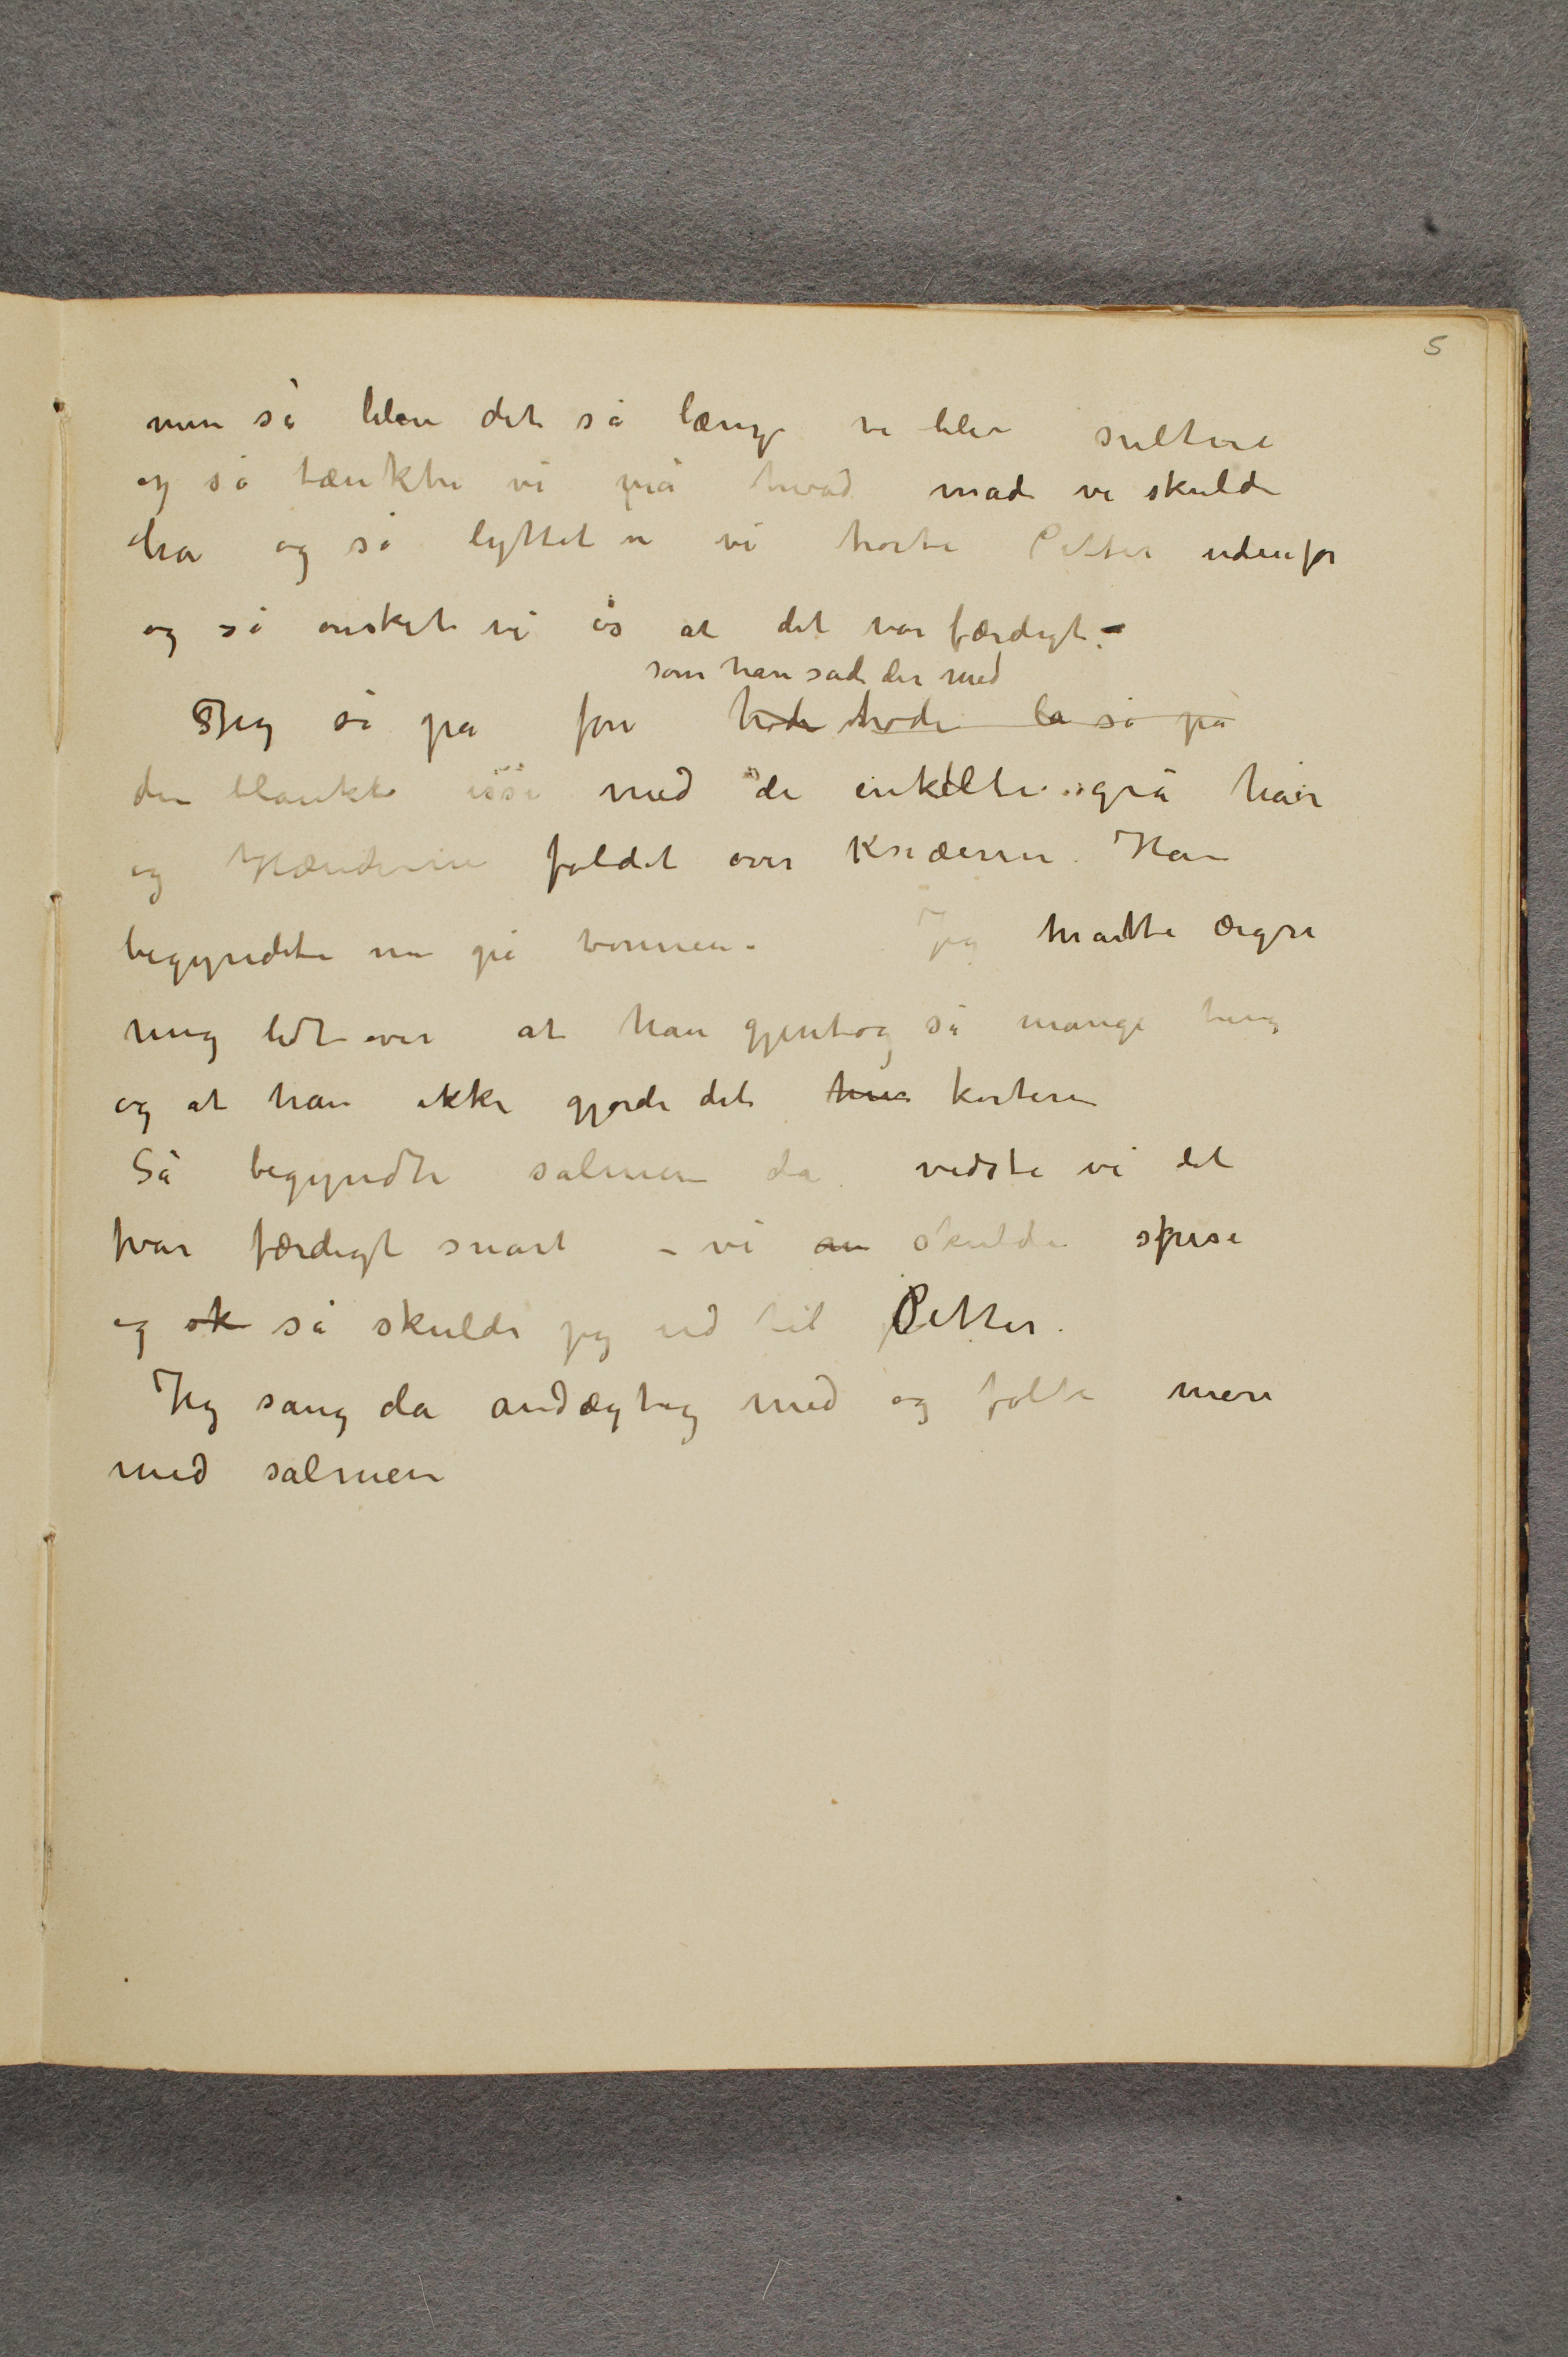 5
men så blev det så længe vi blev sultne
og så tænkte vi på hvad mad vi skulde
ha og så lyttet vi hørte Petter udenfor
og så ønskete vi os at det var færdigt –
som han sad der med
Jeg så på for hode hode la så på
den blanke isse med de enkelte grå hår
og Hænderne foldet over Knæerne. Han
begyndte nu på bønnen. Jeg måtte ærgre
mig lidt over at han gjentog så mange ting
og at han ikke gjorde det kortere
Så begyndte salmen da vidste vi det
var færdigt snart – vi skulde spise
og sk så skulde jeg ud til Petter.
Jeg sang da andægtig med og fölte mere
med salmen